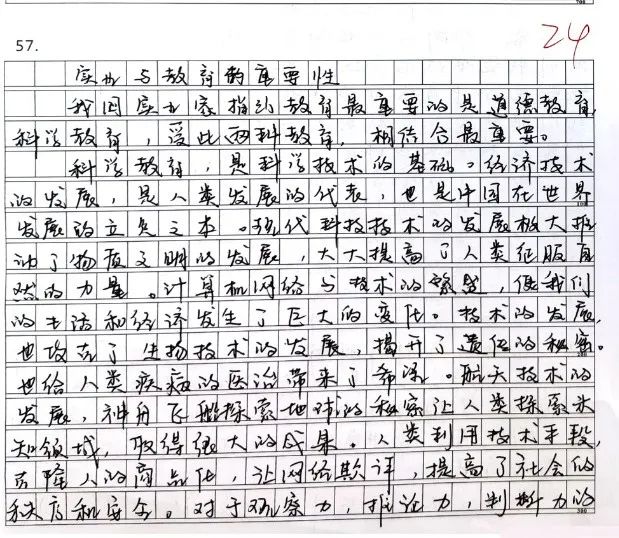 57.
24
实业与教育的重要性
我国实业家指引教育最重要的是道德教育,
科学教育,受此两种教育,相结合最重要。
科学教育,是科学技术的基础。经济技术
的发展,是人类发展的代表,也是中国在世界
发展的立足之本。现代科技技术的发展极大推
动了物质文明的发展,大大提高了人类征服自
然的力量。计算机网络与技术的繁盛,使我们
的生活和经济发生了巨大的变化。技术的发展,
也攻克了生物技术的发展,揭开了遗传的秘密。
也给人类疾病的医治带来了希望。航天技术的
发展,神舟飞船探索地球的秘密让人类探索未
知领域,取得很大的成果。人类利用技术手段,
克隆人的商品化,让网络欺诈,提高了社会的
秩序和安全。对于观察力,推论力,判断力的